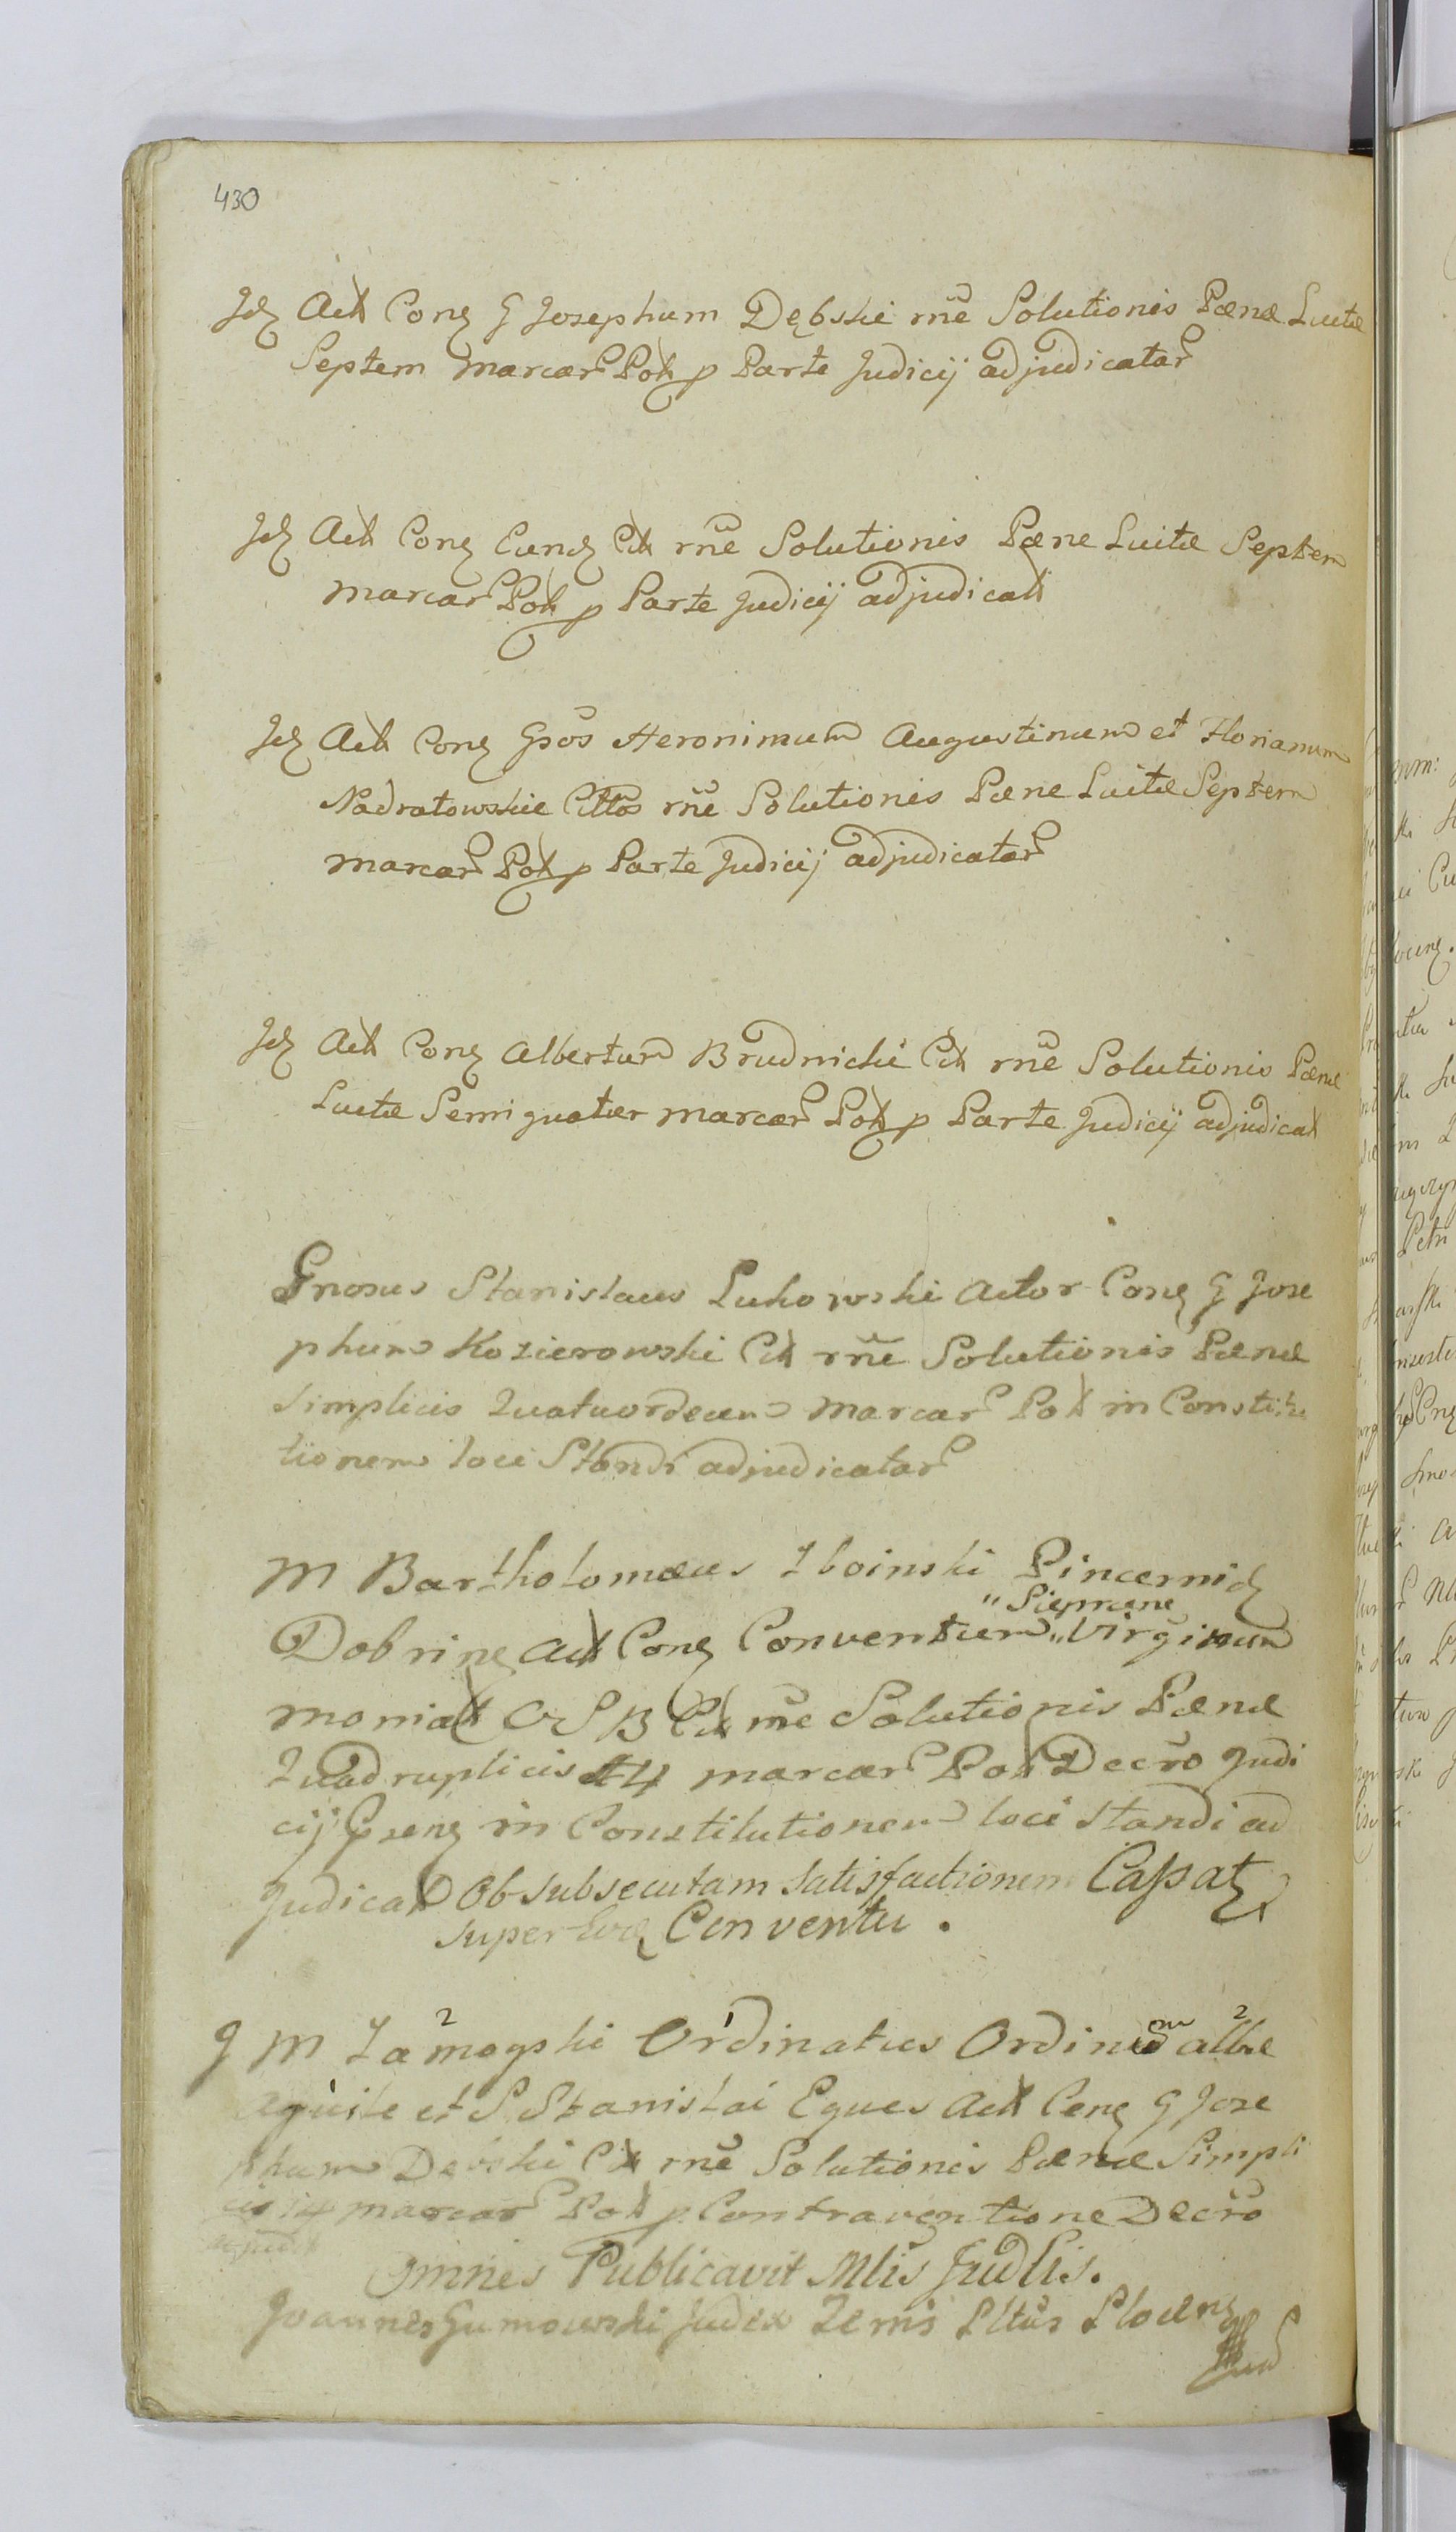 430
Jdz Act Conz G Josephum Dębski rñe Solutionis Pænæ Luitæ
Septem marcar Pol p Parte Judicij adjudicatar
Jdz Act Conz Eundz Cit rñe Solutionis Pæne Luitæ Septem
marcar Pol p Parte Judicij adjudicat
Jdz Act Conz Gsos Heronimum Augustinum et Florianum
Nadratowskie Cttos rñe Solutionis Pæne Luitæ Septem
marcar Pol p Parte Judicij adjudicatar
Jdz Act Conz Albertum Brudnicki Cit rñe Solutionis Pænæ
Luitæ Semi quatuor marcar Pol p Parte Judicij adjudicat
Gnosus Stanislaus Lukowski Actor Conz G Jose
phum Kozierowski Cit rñe Solutionis Pænæ
simplicis Quatuordecem marcar Pol in Constitu
tionem loci Standi adjudicatar
M Bartholomæus Zboinski Pincernidz
" Sieprcene
Dobrinz Act Conz Conventum " Virginum
monial O S B Cit rñe Solutionis Pænæ
Quadruplicis 14 marcar Pol Decro Judi
cij Psenz in Constitutionem loci standi ad
judicat Ob subsecutam satisfactionem Cassatz
super Conventu .
J M Zamoyski Ordinatus Ordinum albæ
aquile et S Stanislai Eques Act Conz G Jose
phum Debski Cit rñe Solutionis Pænæ Simpli
cis 14 marcar Pol p Contraventione Decro
adjudic
Omnes Publicavit Mlis Judlis.
Joannes Gumowski Judex Zemis Pltus Plocenz